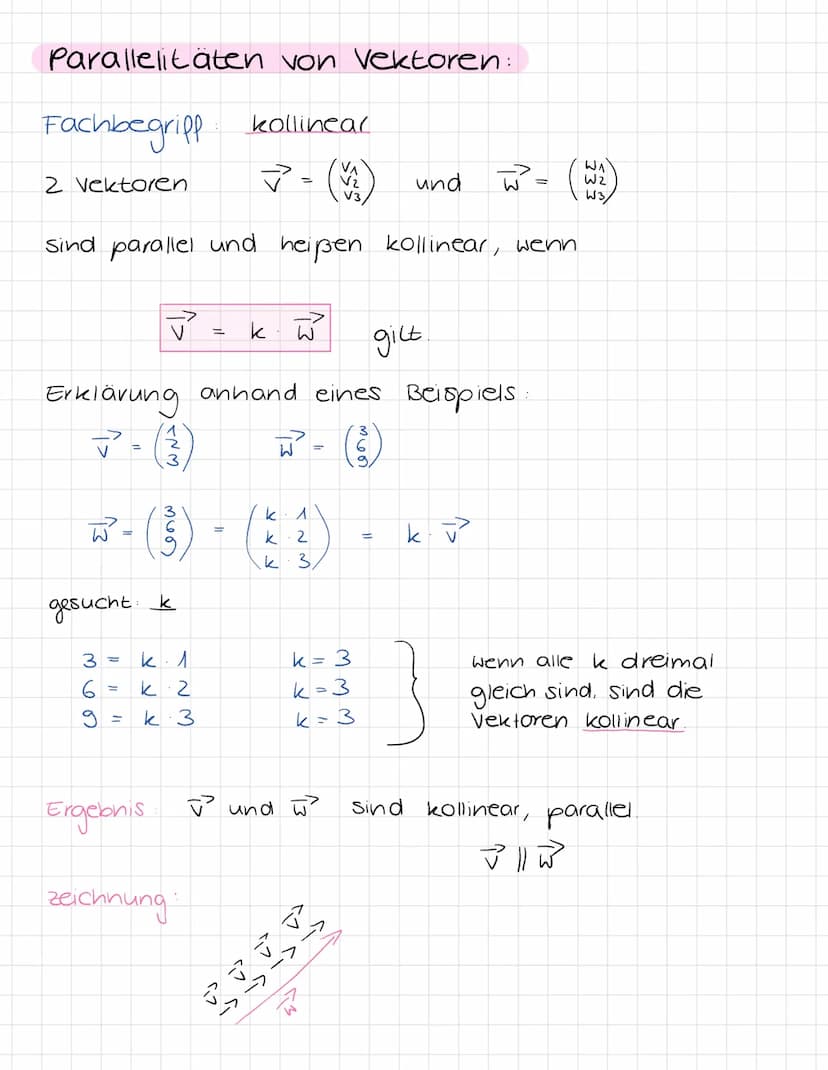 Parallelitäten von Vektoren:
Fachbegriff: kollinear
2 Vektoren v⃗ = (v1 v2 v3) und w⃗ = (w1 w2 w3)
sind parallel und heißen kollinear, wenn
v⃗ = k · w⃗ gilt.
Erklärung anhand eines Beispiels:
v⃗ = (1 2 3) w⃗ = (3 6 9)
w⃗ = (3 6 9) = (k · 1 k · 2 k · 3) = k · v⃗
gesucht: k
3 = k · 1 k = 3 wenn alle k dreimal
6 = k · 2 k = 3 gleich sind, sind die
9 = k · 3 k = 3 Vektoren kollinear.
Ergebnis: v⃗ und w⃗ sind kollinear, parallel.
v⃗ || w⃗
Zeichnung:
v⃗ v⃗ v⃗ v⃗
w⃗